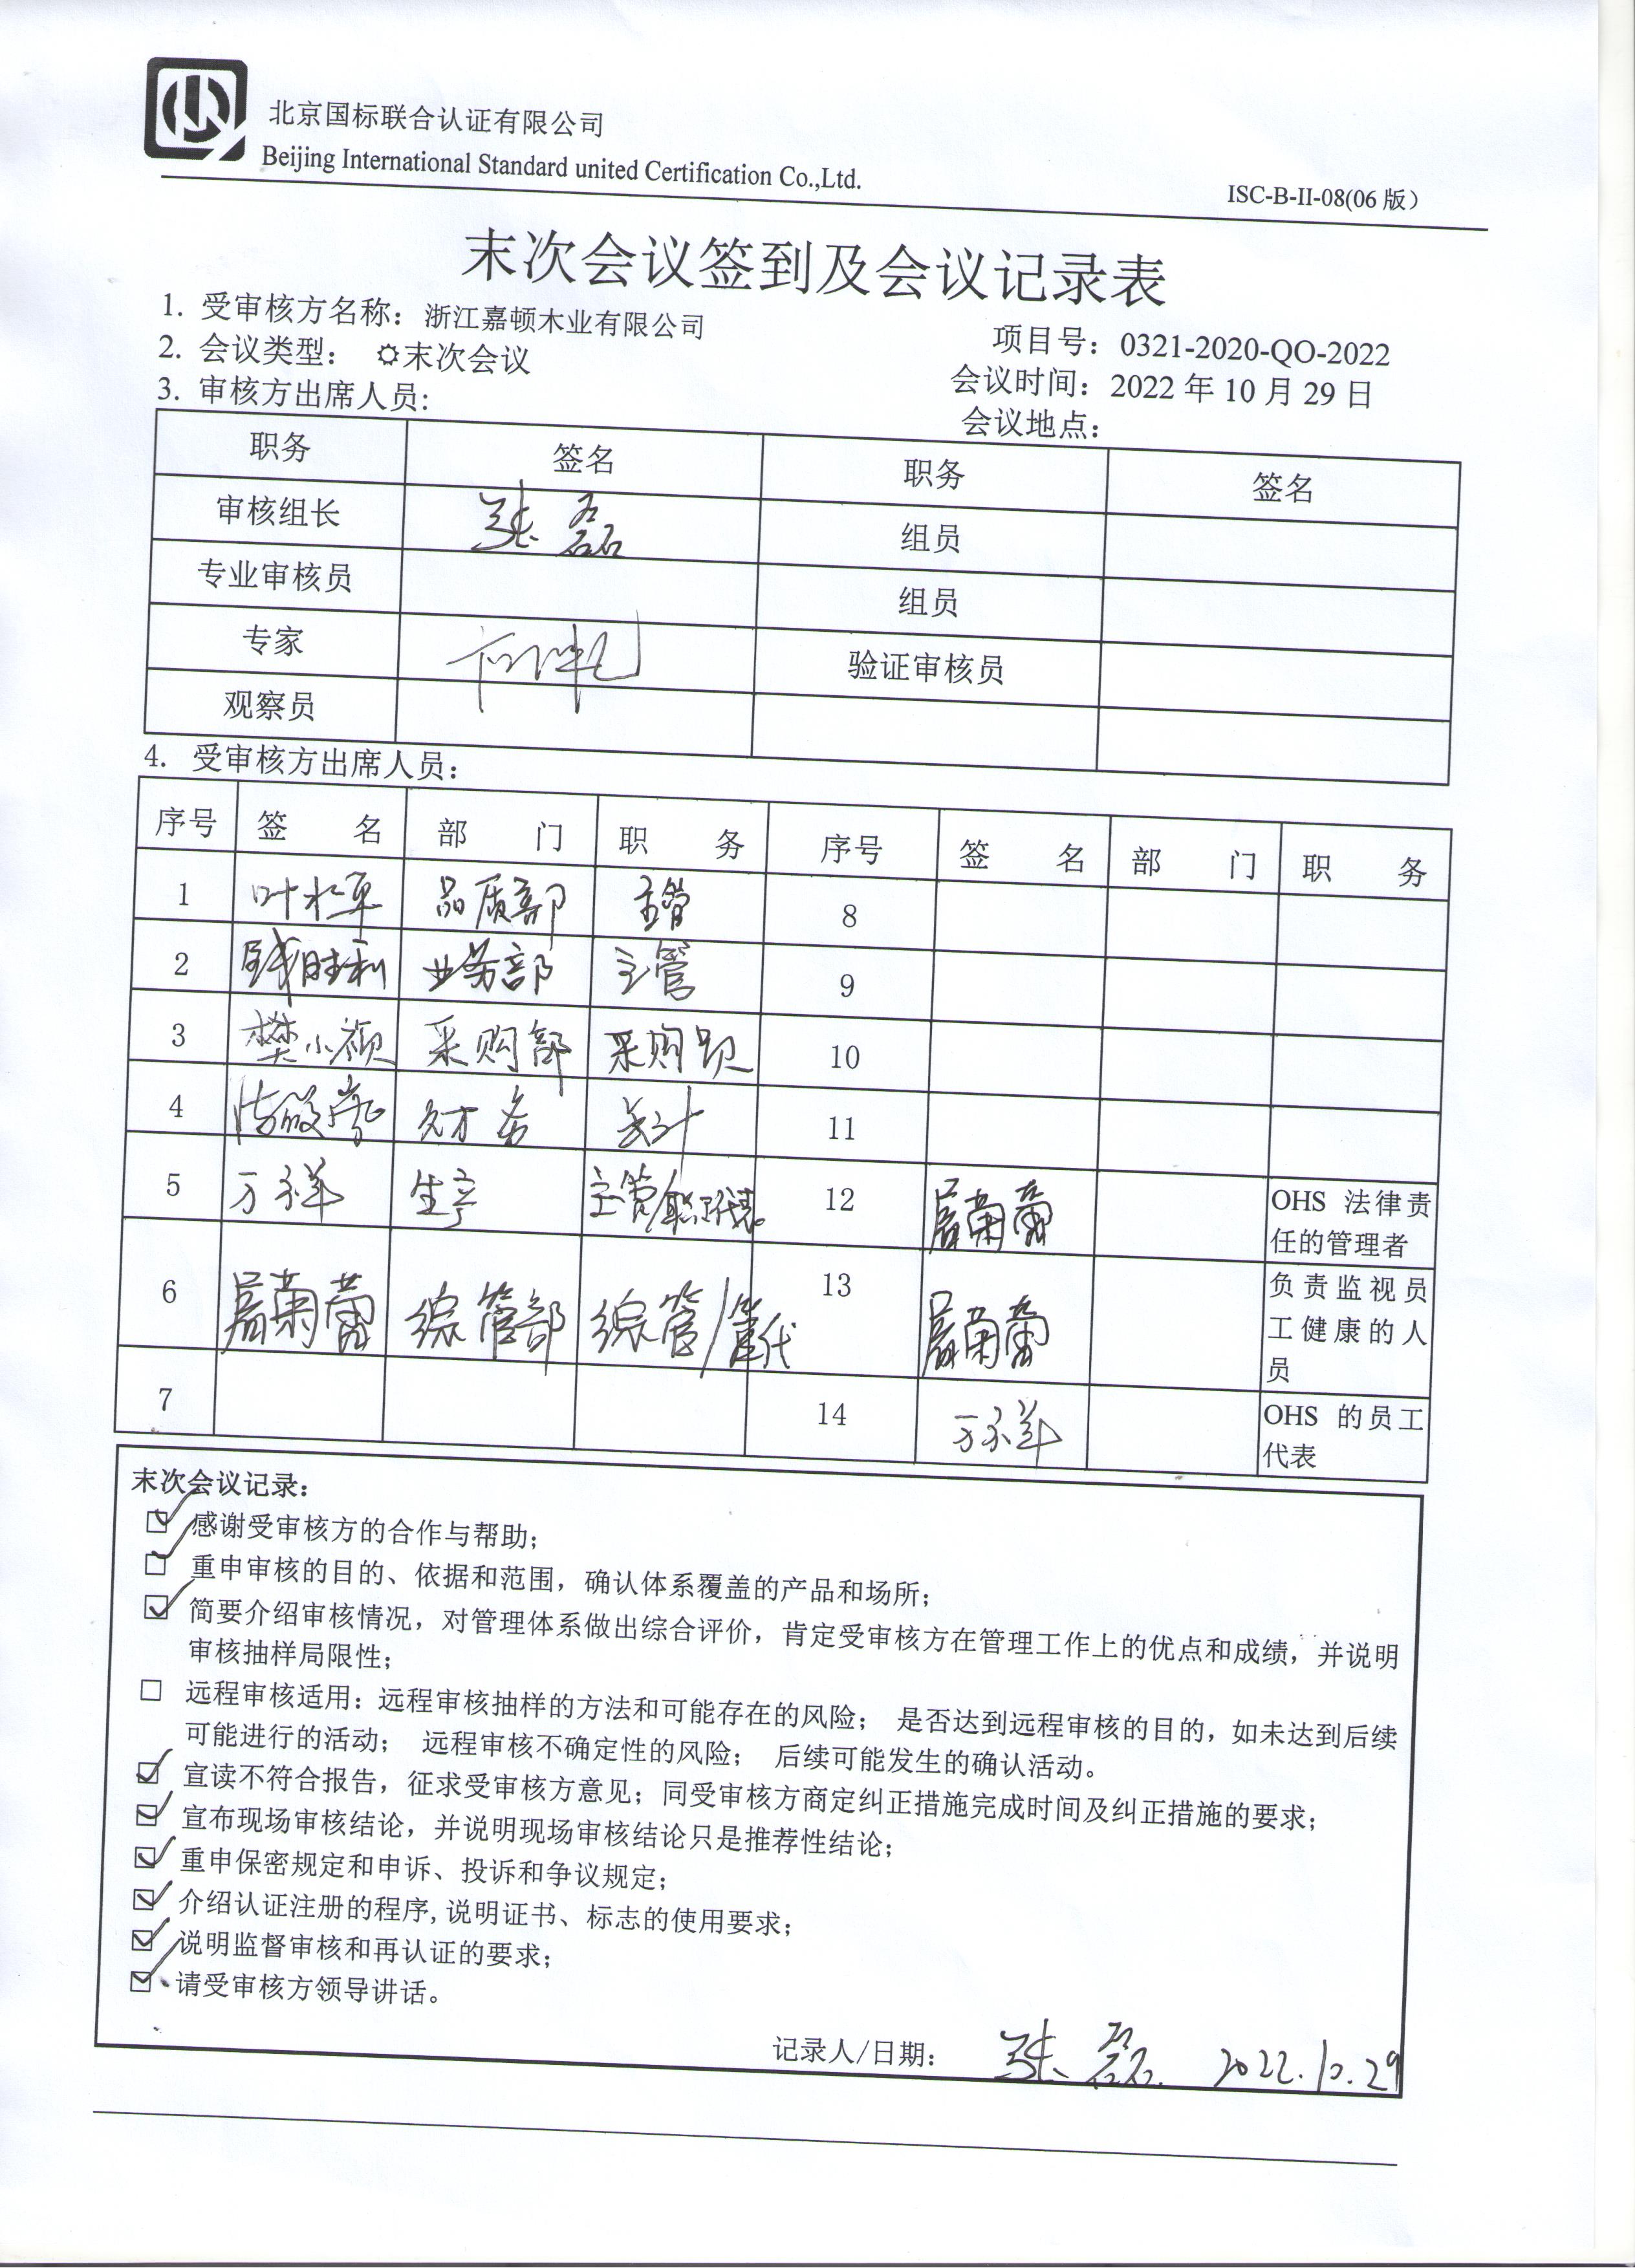 北京国标联合认证有限公司
Beijing International Standard united Certification Co.,Ltd.
ISC-B-II-08(06 版)
末次会议签到及会议记录表
1. 受审核方名称：浙江嘉顿木业有限公司 项目号：0321-2020-QO-2022
2. 会议类型： ☼末次会议 会议时间：2022 年 10 月 29 日
3. 审核方出席人员: 会议地点：
职务 签名 职务 签名
审核组长 张磊 组员
专业审核员 组员
专家 验证审核员
观察员
4. 受审核方出席人员：
序号 签 名 部 门 职 务 序号 签 名 部 门 职 务
1 叶水平 品质部 主管 8
2 钱胜利 业务部 主管 9
3 樊小 采购部 采购员 10
4 财务 会计 11
5 万 生产 主管/职工代表 12 OHS 法律责
任的管理者
6 综管部 综管/管代 13 负责监视员
工健康的人
员
7 14 万 OHS 的员工
代表
末次会议记录：
☑ 感谢受审核方的合作与帮助；
☑ 重申审核的目的、依据和范围，确认体系覆盖的产品和场所；
☑ 简要介绍审核情况，对管理体系做出综合评价，肯定受审核方在管理工作上的优点和成绩，并说明
审核抽样局限性；
□ 远程审核适用：远程审核抽样的方法和可能存在的风险； 是否达到远程审核的目的，如未达到后续
可能进行的活动； 远程审核不确定性的风险； 后续可能发生的确认活动。
☑ 宣读不符合报告，征求受审核方意见；同受审核方商定纠正措施完成时间及纠正措施的要求；
☑ 宣布现场审核结论，并说明现场审核结论只是推荐性结论；
☑ 重申保密规定和申诉、投诉和争议规定；
☑ 介绍认证注册的程序,说明证书、标志的使用要求；
☑ 说明监督审核和再认证的要求；
☑ 请受审核方领导讲话。
记录人/日期： 张磊 2022.10.29